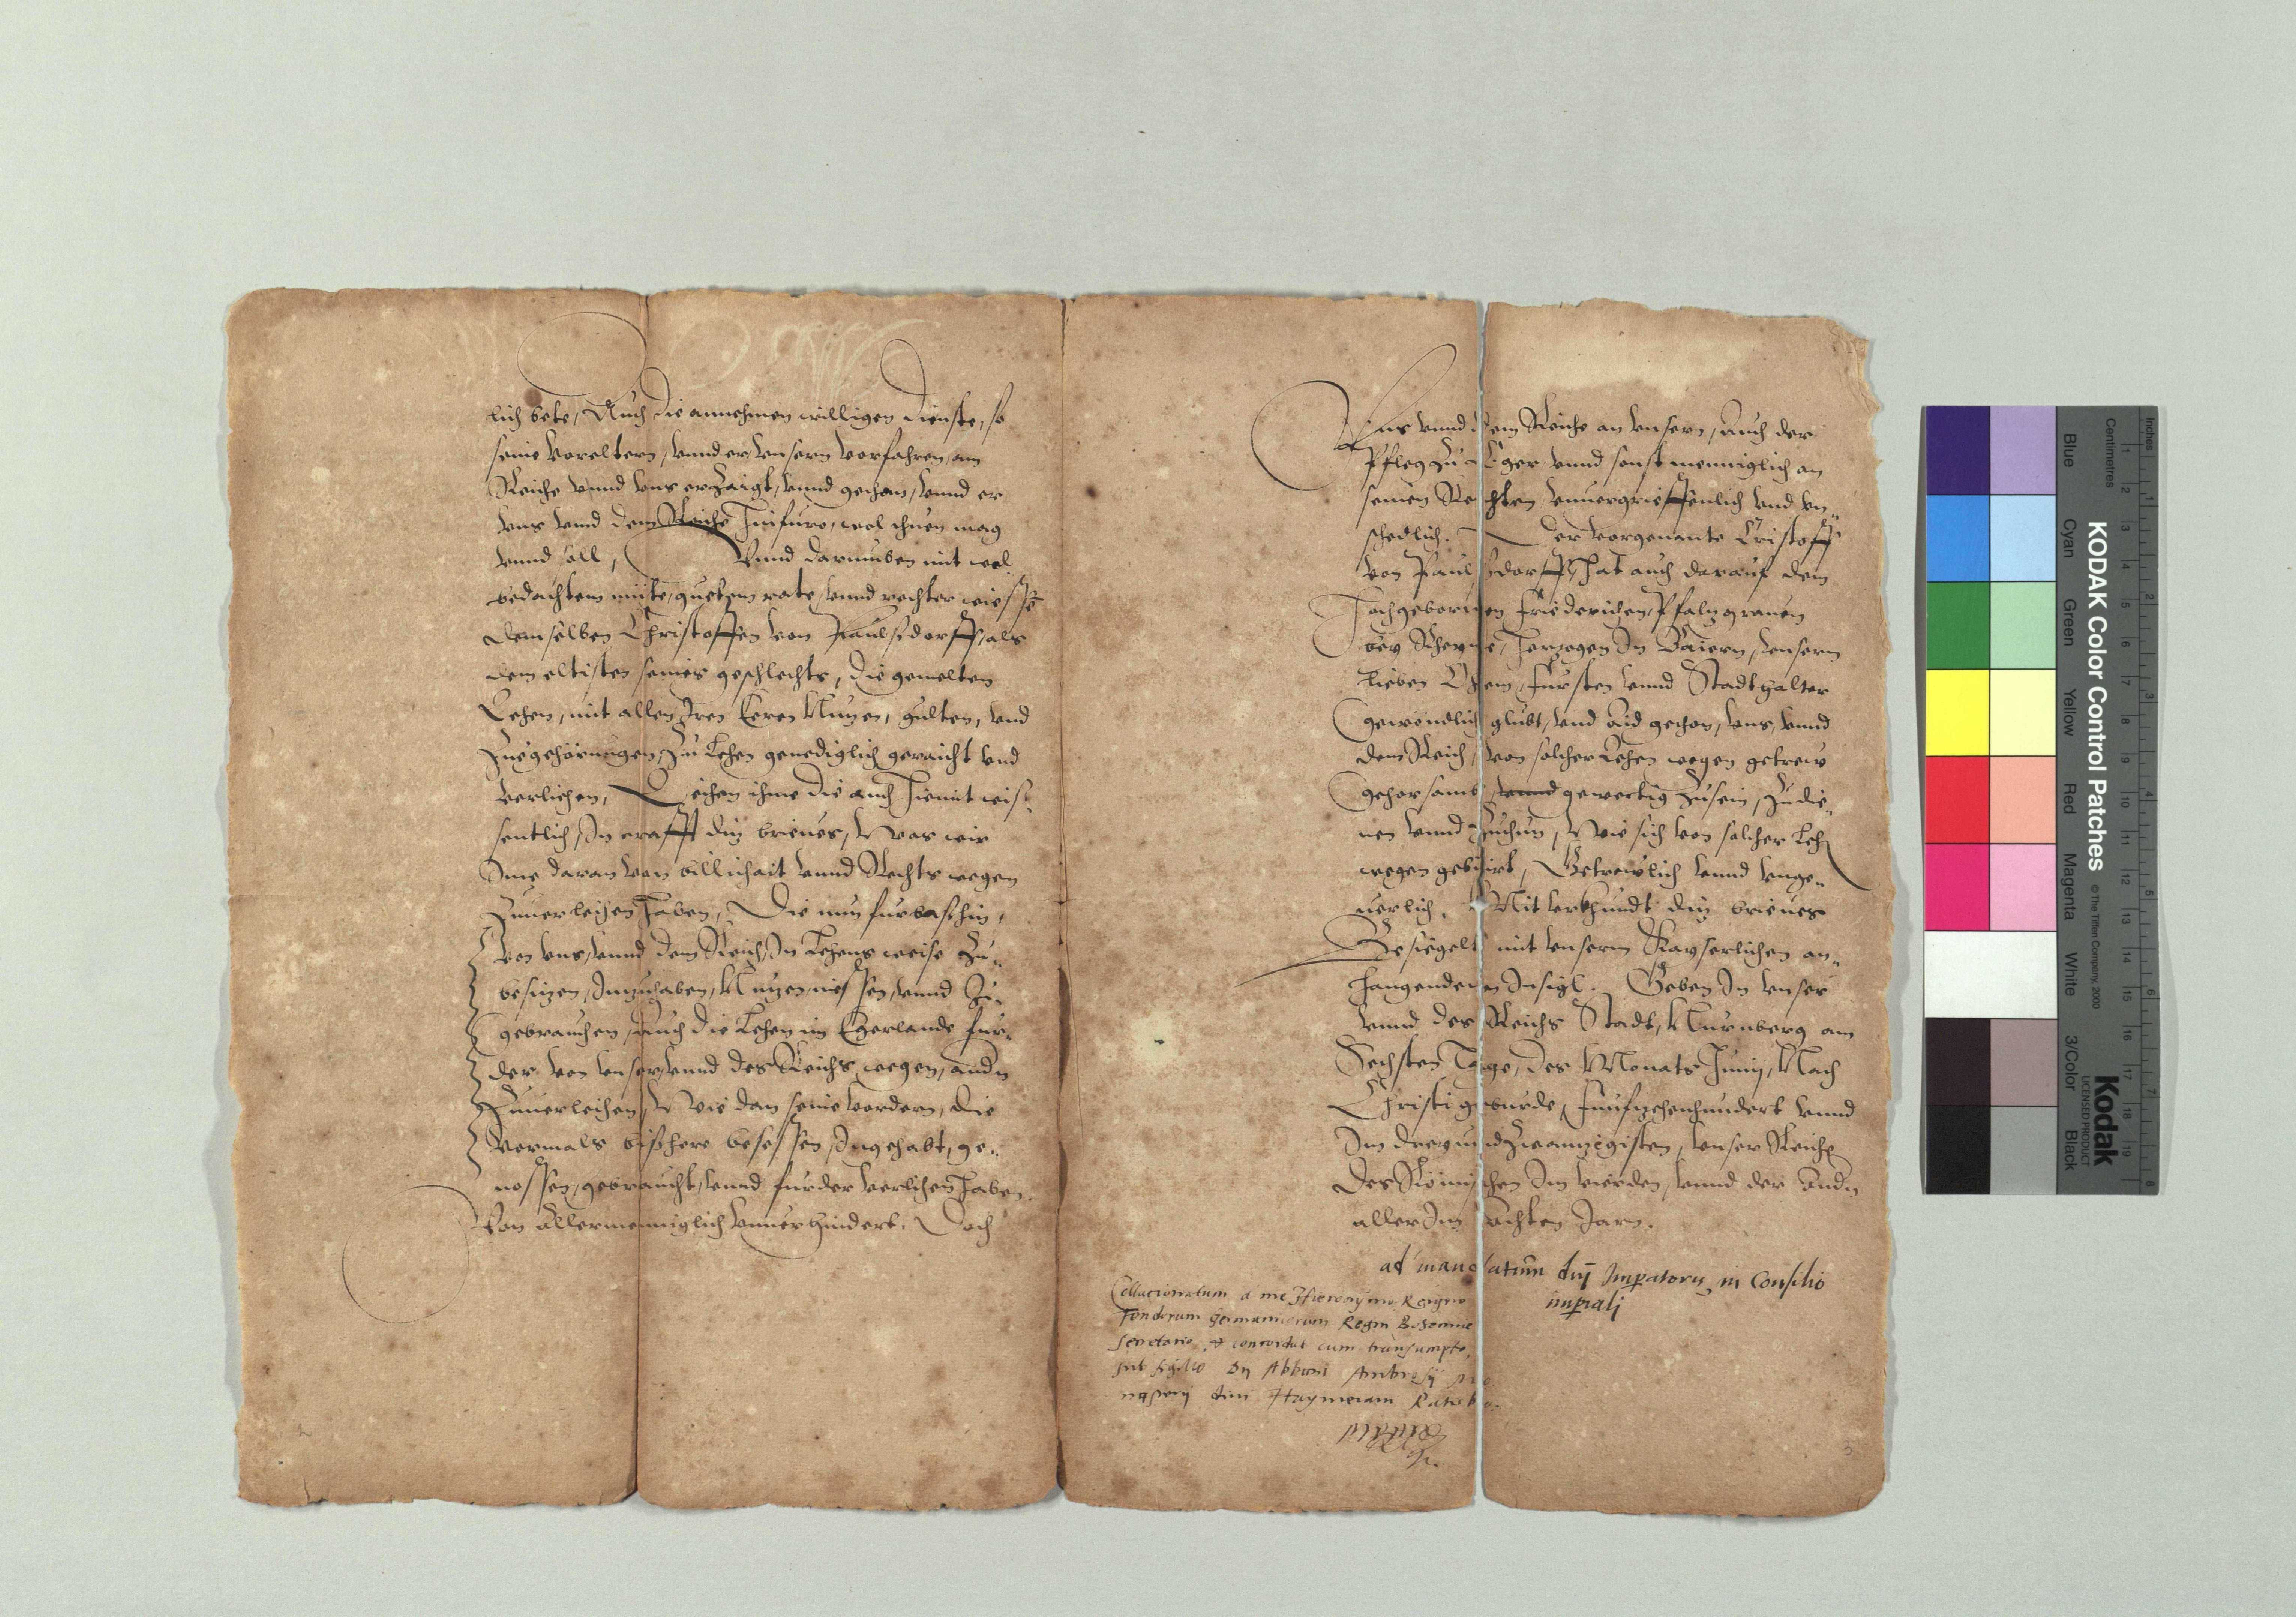 lich bete, Auch die annehmen willigen dienste, so
seine Voreltern, vnnd er, vnsern Vorfahren, am
Reiche vnnd vns erzaigt, vnnd gethan, vnnd er
vns vnnd dem Reiche Innfuro, wol thuen mag
vnnd soll, Vnnd darumben mit wol
bedachtem mute, guetem rate, vnnd rechter wiesse
demselben Christoffen von Paulsdorff, als
dem eltisten seines geschlechts, die gemelten
Lehen, mit allen Iren Eeren Nuzen, gulten, vnd
Zuegehörungen, Zu Lehen genediglich geraicht vnd
verliehen, Leihen ihme die auch hiemit wis-
sentlich, In crafft diz brieues, Was wir
Ime daran von billichait vnnd Rechts wegen
Zuuerleihen haben, Die nun furbasshin,
von vns, vnnd dem Reich, In Lehens weise Zu-
besizen, Inzuhaben, Nuzen, niessen, vnnd Zu-
gebrauchen, Auch die Lehen im Egerlande fur-
der von vnser, vnnd des Reichs wegen, andn
Zuuerleihen, Wie dan seine vordern, die
vormals bisshere besessen, Ingehabt, ge-
nossen, gebraucht, vnnd furder verlihen haben.
Von allermenniglich vnuerhindert. Doch
Vns vnnd dem Reiche an vnsern, Auch der
Pfleg Zu Eger vnnd sonst menniglich an
seinen Rechten vnuergrieffenlich vnd vn-
schedlich. Der vorgenante Cristoff
von Paulsdorff, hat auch darauf dem
Hochgebornnen Friderichen, Pfalnzgrauen
bey Rheyne, Herzogen In Baiern, vnsern
Lieben Ohem, Fursten vnnd Stadthalter
gewöndlich glubt, vnd Aid gethan, vns, vnnd
dem Reich, von solcher Lehen wegen getrew
gehorsamb, vnnd gewertig Zusein, Zudie-
nen vnnd Zuthun, Wie sich von solcher Leh
wegen gebürt, Getrewlich vnnd vnge-
uerlich. Mit vrkhundt diz brieues
Besiegelt mit vnserm Kayserlichen an-
hangenden Insigl. Geben In vnser
vnnd des Reichs Stadt, Nurnberg am
Sechsten Tage, des Monats Junij, Nach
Christi geburde, Funfzehenhundert vnnd
Im dreyundzwannzigisten, vnser Reiche
des Römischen Im vierden, vnnd der Andn
aller Im achten Jarn.
ad mandatum dnj Imperatoris in Consilio
imperiali
Collacionatum a me Hieronymo
Feudorum Germanicorum Regni Bohemie
Secretario, et concordat cum transumpto,
sub sigillo Dnj Abbatis Ambrosij Mo
nasterij diui Haymerami Ratisbo.